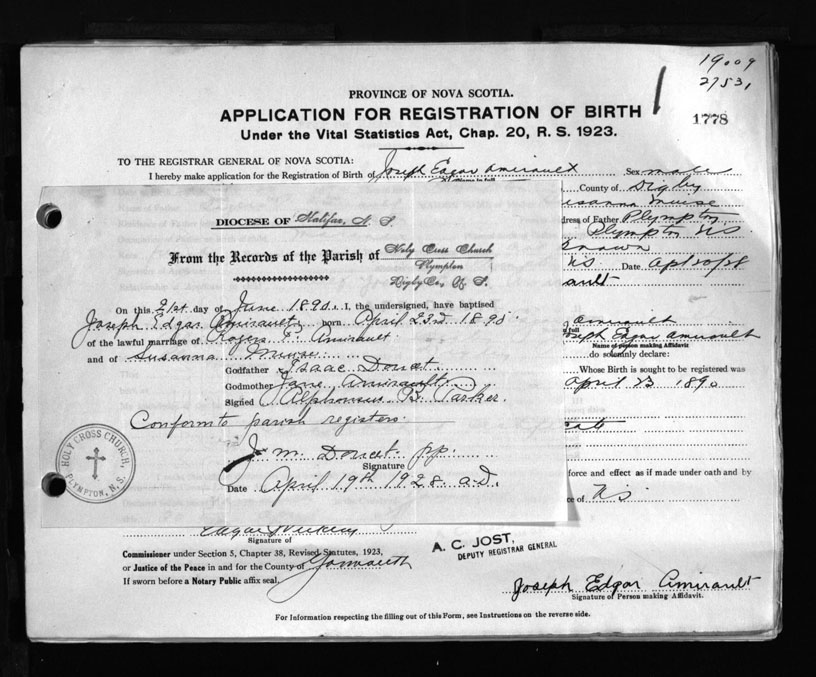 19009
27531
PROVINCE OF NOVA SCOTIA.
APPLICATION FOR REGISTRATION OF BIRTH
1778
Under the Vital Statistics Act, Chap. 20, R. S. 1923.
TO THE REGISTRAR GENERAL OF NOVA SCOTIA:
I hereby make application for the Registration of Birth of Joseph Edgar Amirault Sex male
County of Digby
usanna Muise
dress of Father Plympton
Plympton NS
known
NS Date Apl 20/28
ault
DIOCESE OF Halifax, N. S.
From the Records of the Parish of Holy Cross Church
Plympton
Digby Co. N. S.
On this 21st day of June 1890. I, the undersigned, have baptised
Joseph Edgar Amirault born April 23rd 1890.
of the lawful marriage of Amirault
and of Susanna Muise
Godfather Isaac Doucet
Godmother Jane Amirault
Signed Alphonsus B. Parker.
Conform to parish registers.
J. M. Doucet pp.
Signature
Date April 19th 1928 A.D.
HOLY CROSS CHURCH, PLYMPTON, N.S.
Amirault
Joseph Edgar Amirault
Name of person making Affidavit
do solemnly declare:
Whose Birth is sought to be registered was
April 23 1890
force and effect as if made under oath and by
ce of NS
Edgar
Signature of
Commissioner under Section 5, Chapter 38, Revised Statutes, 1923,
or Justice of the Peace in and for the County of Yarmouth
If sworn before a Notary Public affix seal,
A. C. JOST,
DEPUTY REGISTRAR GENERAL
Joseph Edgar Amirault
Signature of Person making Affidavit.
For Information respecting the filling out of this Form, see Instructions on the reverse side.